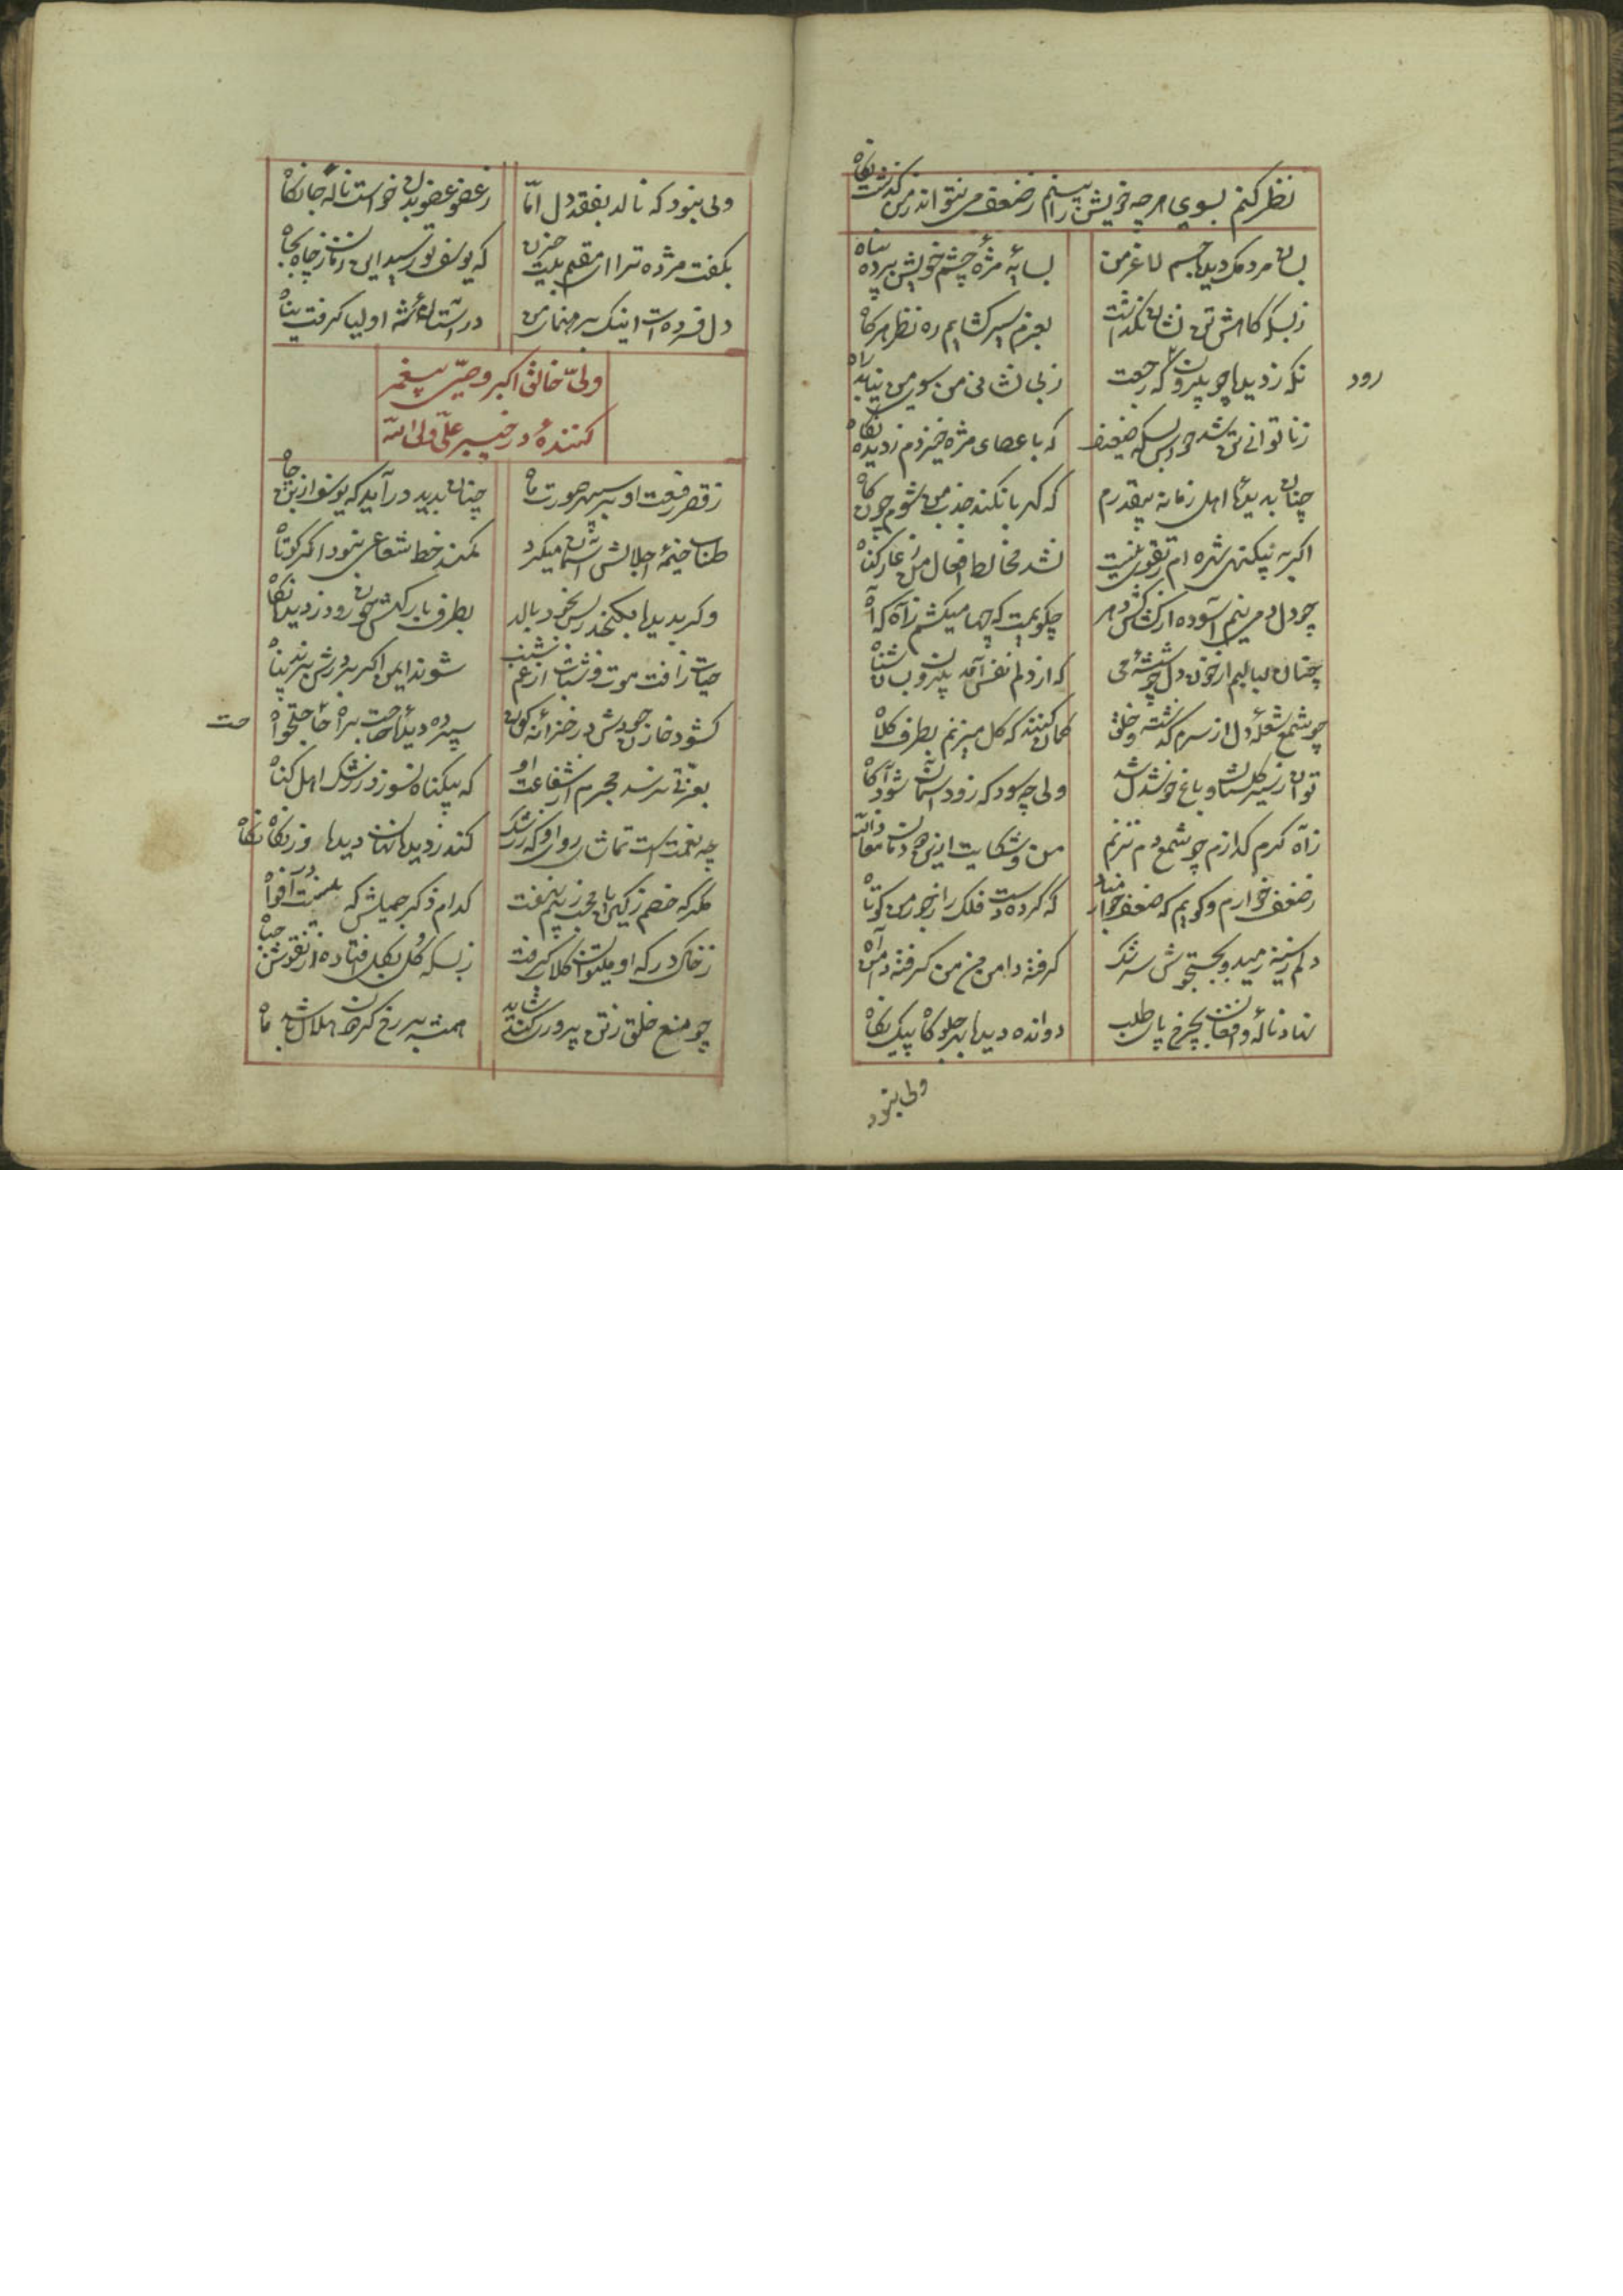 نظر کنم بسوی هر چه خویش را بینم ز ضعف من نتواند ز من گذشت نگاه
بسان مردمک دیدها جسم لاغر من
بسایهٔ مژهٔ چشم خویش برده پناه
ز بسکه کاهش تن نشان نگذاشت
بعزم سیر گشایم ره نظر هرگاه
نگه ز دیدها چو بیرون که رجعت
رود
ز بی نشانی من سوی من نیابد راه
ز ناتوانی تن شد حواس بسکه ضعیف
که با عصای مژه خیزدم ز دیده نگاه
چنان بدیدهٔ اهل زمانه بیقدرم
که کهربا نکند جذب من شوم چون کاه
اگر به نیکنهی شهره ام ز تقوی نیست
نشد مخالط افعال من ز عار گناه
چو دل دمی ننم آسوده از کشاکش دهر
چگویمت که چها میکشم ز آه که آه
چنان لبالبم از خون دل چو شیشهٔ می
که از دلم نفس آمد برون بسان شناه
چو شمع شعلهٔ دل از سرم گذشته و خلق
گمان کنند که گل میزنم بطرف کلاه
توان ز سیر گلستان و باغ خوشدل شد
ولی چه سود که زود آسمان شود آگاه
ز آه گرم گدازم چو شمع و دم نزنم
من و شکایت ازین همدمان معاذالله
ز ضعف خوارم و گویم که ضعف خوار مباد
که کرده دست فلک را ز جور من کوتاه
دلم ز سینه رمید و بجستجوش سرشک
گرفته دامن من من گرفته دامن آه
نهاد ناله و افغان بچرخ پا بطلب
دوانده دیدها بهر جلوگاه پیک نگاه
ولی نبود
ولی نبود که نالد بفقد دل امّا
ز عضو عضو بدن خواست نالهٔ جانکاه
بگفت مژده ترا ای مقیم بیت حزن
که یوسف تو رسید این زمان ز چاه بجاه
دل فسرده ات اینک برهنمائی من
در آستانهٔ شه اولیا گرفت پناه
ولیّ خالق اکبر وصیّ پیغمبر
کنندهٔ در خیبر علیّ ولی الله
ز قصر رفعت او بر سپهر صورت ماه
چنان بدید درآید که یوسف از بن چاه
طناب خیمهٔ اجلالش آسمان میکرد
کمند خط شعاعی نبود اگر کوتاه
وگر بدیدها نگنجد ز بس بخود بالد
بطرف بارگهش چون رود ز دیدها نگاه
حیات ز آفت موت و شباب از غم شیب
شوند ایمن اگر بر درش برند پناه
گشود خازن جودش در خزائن کون
سپرد دیدهٔ حاجت براه حاجتخواه
حت
بعزّتی نرسد مجرم از شفاعت او
که بیگناه نسوزد ز رشک اهل گناه
چه نعمت است تماشای روی او که ز رشک
کند ز دیدها نهان دیدها ور نگاه نگاه
مگر که خصم ز کین یا محب ز بیم نهفت
کدام ذکر جمیلش که نیست در افواه
ز خاک درگه او میتوان گلاب گرفت
ز بسکه گل بگل افتاده از نقوش جباه
چو منع خلق ز تن پروری کند شاید
همت بر رخ گردون هلال باشد ماه